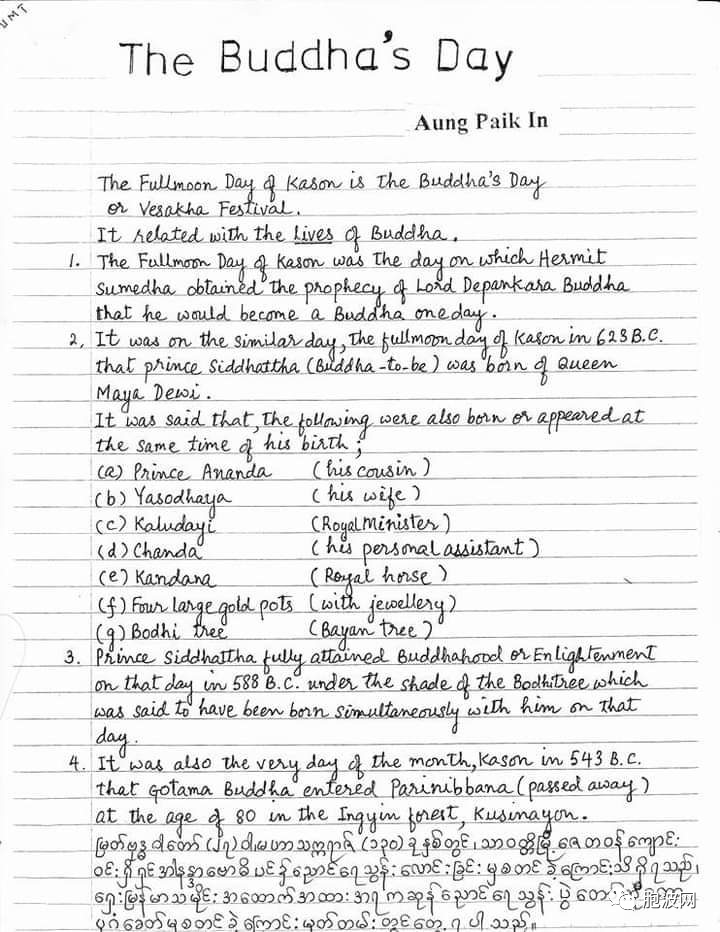 UMT
The Buddha's Day
Aung Paik In
The Fullmoon Day of Kason is the Buddha's Day
or Vesakha Festival.
It related with the Lives of Buddha.
1. The Fullmoon Day of Kason was the day on which Hermit
Sumedha obtained the prophecy of Lord Depankara Buddha
that he would become a Buddha oneday.
2, It was on the similar day, the fullmoon day of Kason in 623 B.C.
that prince Siddhattha (Buddha-to-be) was born of Queen
Maya Dewi.
It was said that, the following were also born or appeared at
the same time of his birth;
(a) Prince Ananda (his cousin)
(b) Yasodhaya (his wife)
(c) Kaludayi (Royal Minister)
(d) Chanda (his personal assistant)
(e) Kandana (Royal horse)
(f) Four large gold pots (with jewellery)
(g) Bodhi tree (Bayan tree)
3. Prince Siddhattha fully attained Buddhahood or Enlightenment
on that day in 588 B.C. under the shade of the Bodhitree which
was said to have been born simultaneously with him on that
day.
4. It was also the very day of the month, Kason in 543 B.C.
that Gotama Buddha entered Parinibbana (passed away)
at the age of 80 in the Ingyin forest, Kusinayon.
မြတ်ဗုဒ္ဓ ဝါတော် (၂၇) ဝါ၊ မဟာသက္ကရာဇ် (၁၃၀) ခုနှစ်တွင်၊ သာဝတ္တိမြို့ ဇေတဝန်ကျောင်း
ဝင်း၌ ရှင်အာနန္ဒာ ဗောဓိပင်၌ ညောင်ရေသွန်းလောင်းခြင်းမှ စတင်ခဲ့ကြောင်း သိရှိရသည်၊
ရှေးမြန်မာသမိုင်း အထောက်အထားအရ ကဆုန်ညောင်ရေသွန်းပွဲတော်ကို
ပုဂံခေတ်မှ စတင်ခဲ့ကြောင်း မှတ်တမ်းတွင် တွေ့ရပါသည်။
胞波网